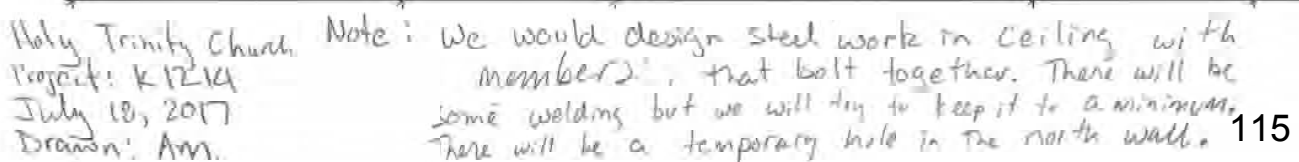 Holy Trinity Church
Project: K1214
July 18, 2017
Drawn: Am.
Note: We would design steel work in Ceiling with
members, that bolt together. There will be
some welding but we will try to keep it to a minimum.
There will be a temporary hole in The north wall.
115